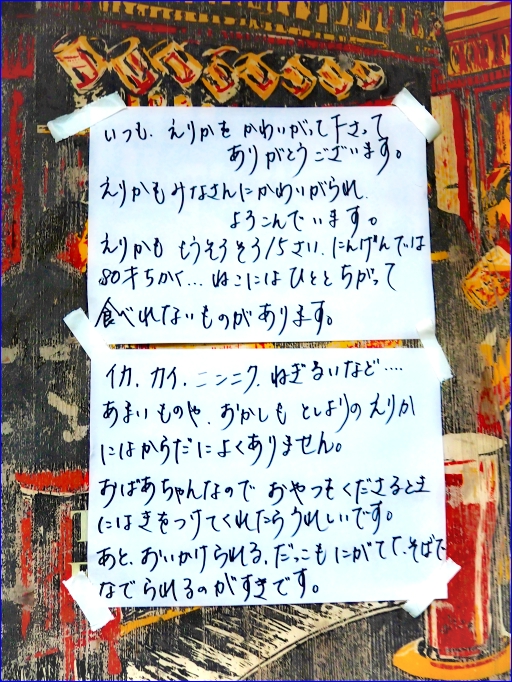 いつも、えりかを かわいがって下さって
ありがとうございます。
えりかもみなさんにかわいがられ、
よろこんでいます。
えりかも もうそろそろ15さい、にんげんでは
80才ちかく…ねこにはひととちがって
食べれないものがあります。
イカ、カイ、ニンニク、ねぎるいなど‥‥
あまいものや、おかしも としよりのえりか
にはからだによくありません。
おばあちゃんなので おやつもくださるとき
にはきをつけてくれたらうれしいです。
あと、おいかけられる、だっこもにがてで、そばで
なでられるのがすきです。